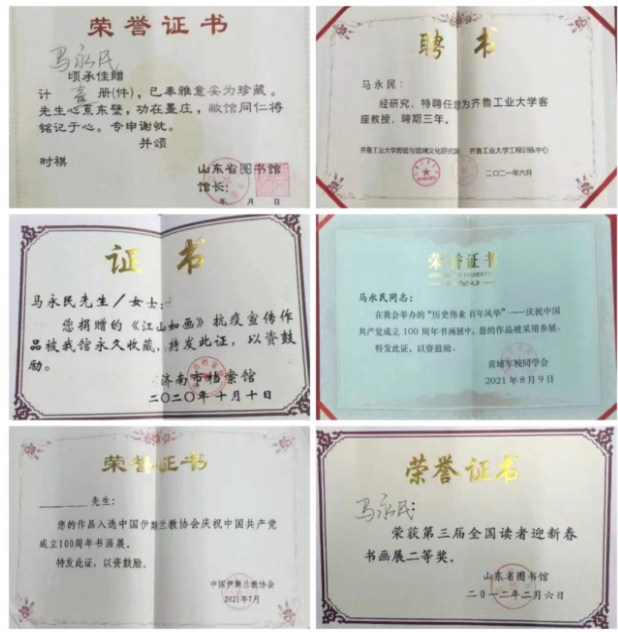 荣誉证书
马永民
顷承佳赠
计 壹 册(件)，已奉雅意妥为珍藏。
先生心系东壁，功在墨庄，敝馆同仁将
铭记于心。专申谢忱。
并颂
时祺
山东省图书馆
馆长：
年 月 日
聘书
马永民：
经研究，特聘任您为齐鲁工业大学客
座教授，聘期三年。
齐鲁工业大学工程训练中心
二〇二一年六月
证书
马永民先生/女士：
您捐赠的《江山如画》抗疫宣传作
品被我馆永久收藏，特发此证，以资鼓
励。
济南市档案馆
二〇二〇年十月十日
荣誉证书
马永民同志：
在我会举办的“历史伟业 百年风华”——庆祝中国
共产党成立 100 周年书画展中，您的作品被采用参展。
特发此证，以资鼓励。
黄埔军校同学会
2021 年 8 月 9 日
荣誉证书
先生：
您的作品入选中国伊斯兰教协会庆祝中国共产党
成立100周年书画展。
特发此证，以资鼓励。
中国伊斯兰教协会
2021年7月
荣誉证书
马永民：
荣获第三届全国读者迎新春
书画展二等奖。
山东省图书馆
二〇一二年二月六日